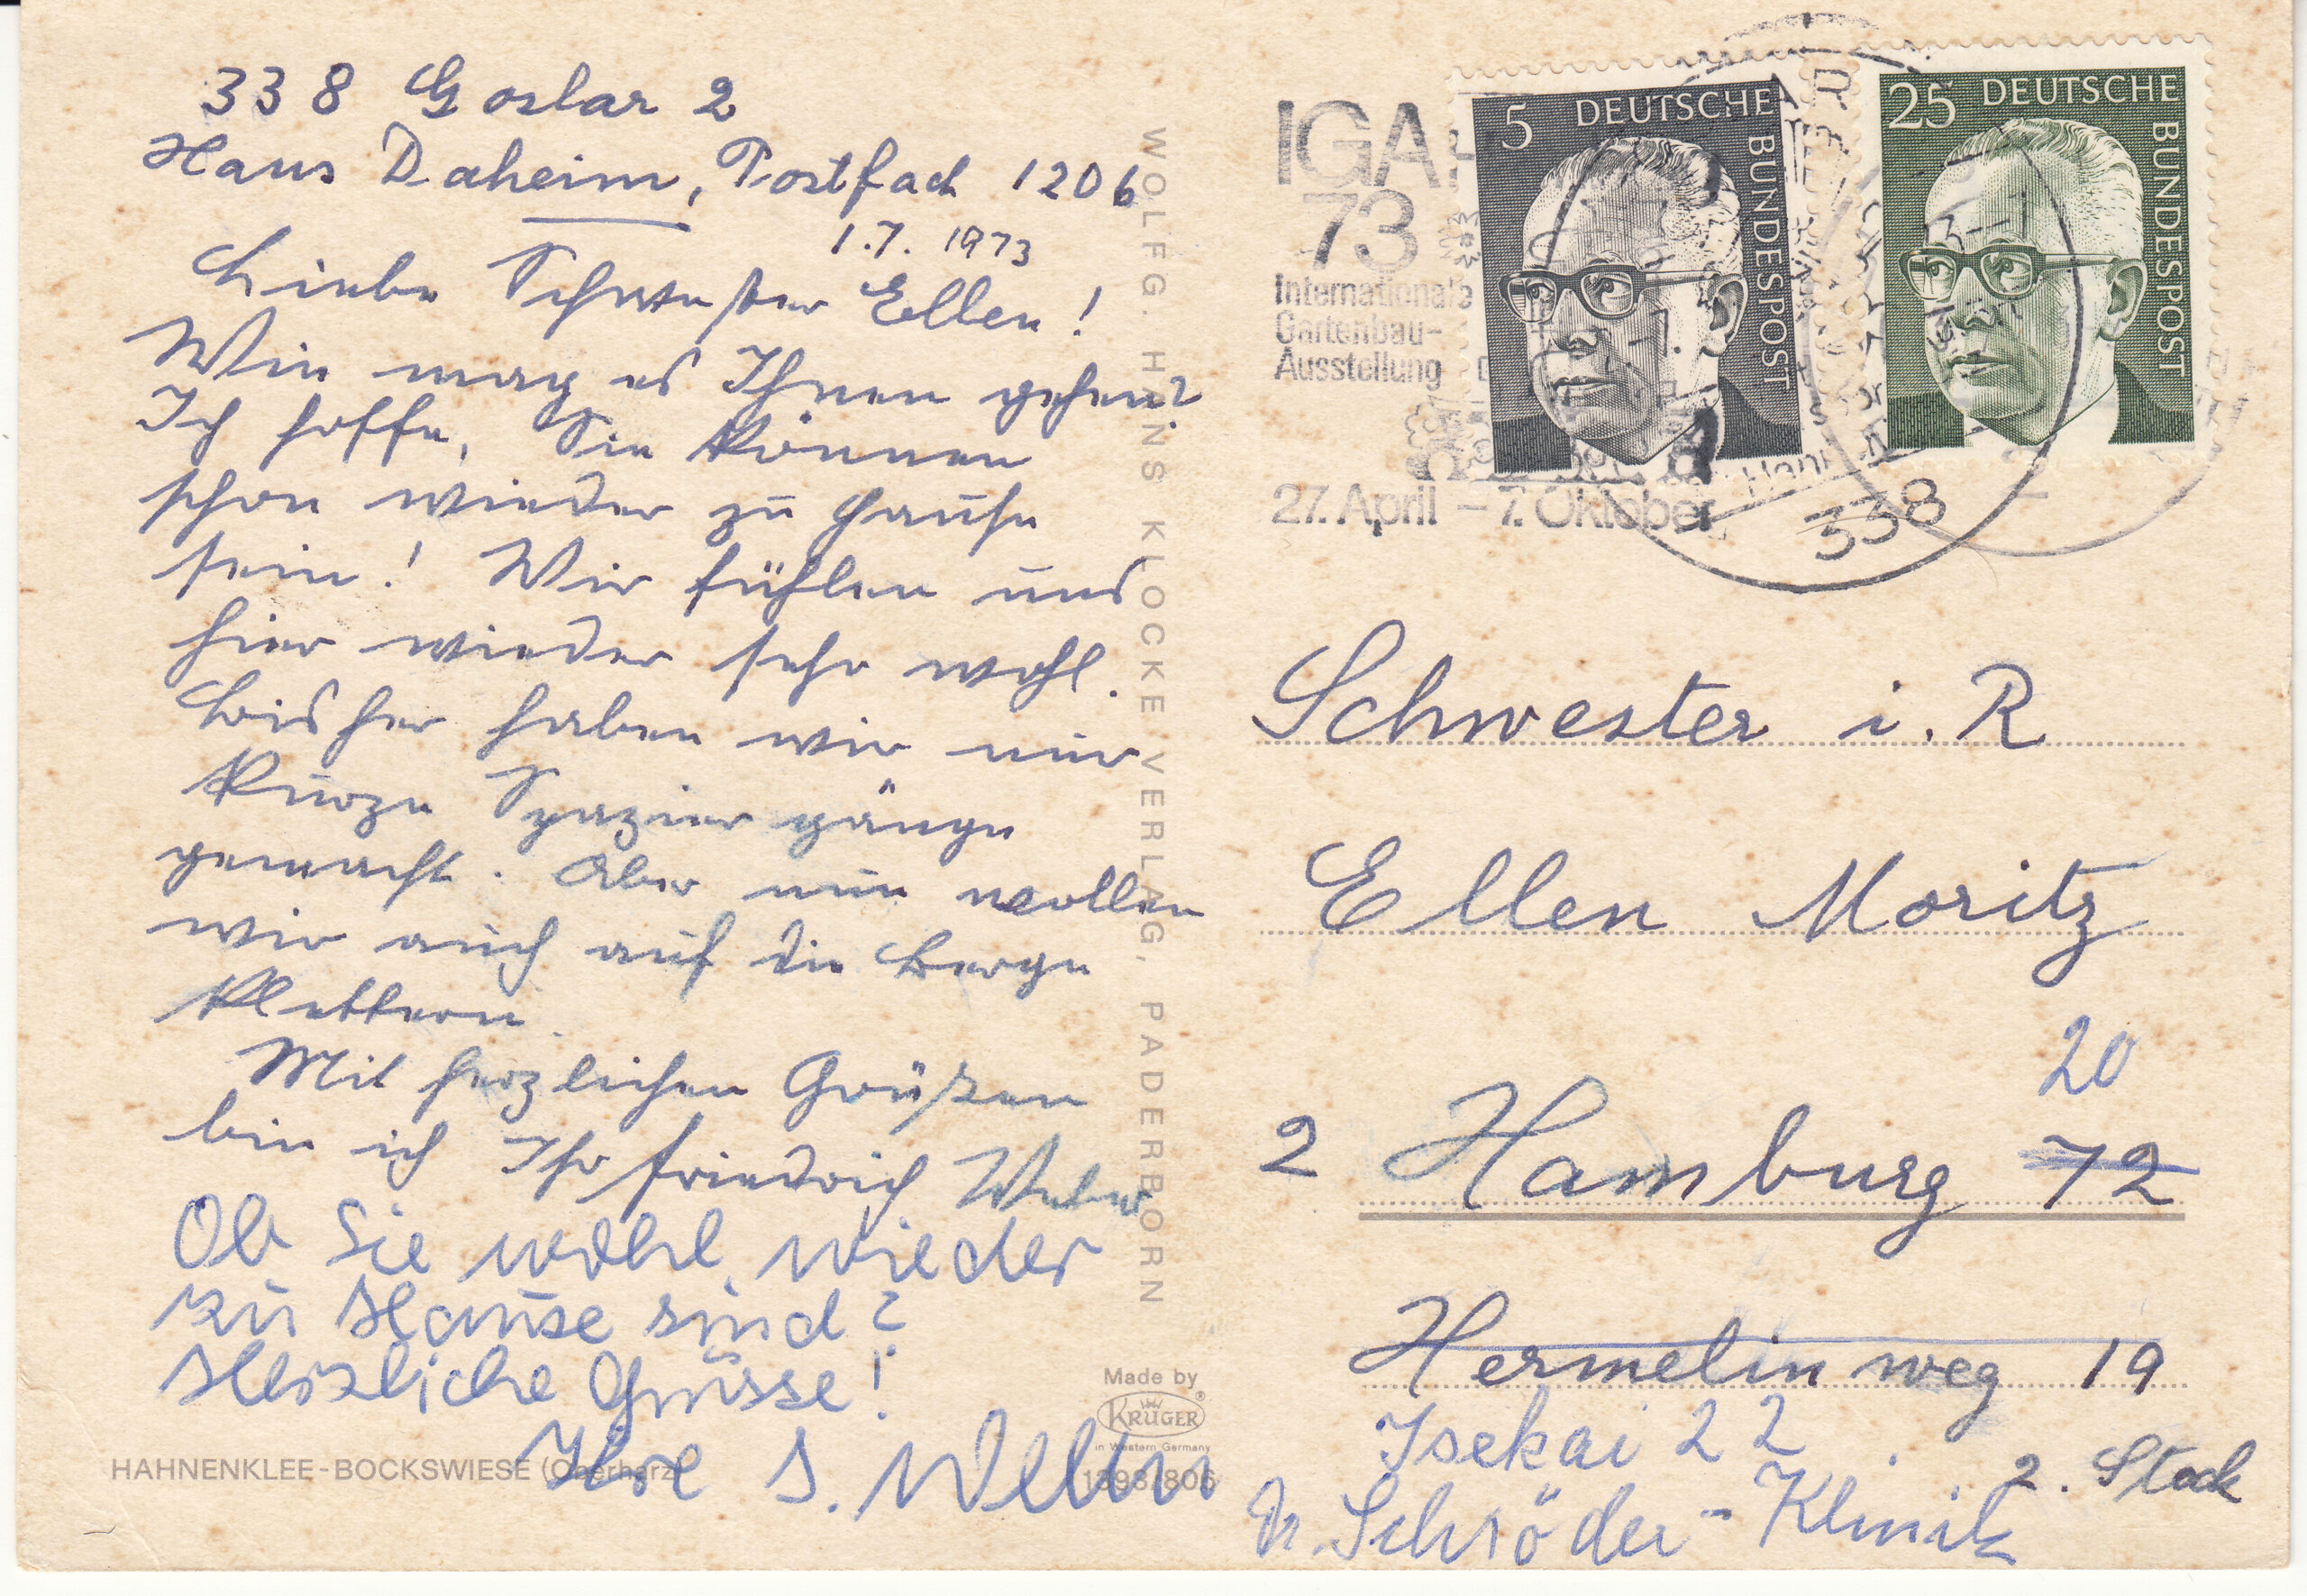 338 Goslar 2
Haus Daheim, Postfach 1206
1.7. 1973
Liebe Schwester Ellen!
Wie mag es Ihnen gehen?
Ich hoffe, Sie können
schon wieder zu Hause
sein! Wir fühlen uns
hier wieder sehr wohl.
Bisher haben wir nur
kurze Spaziergänge
gemacht. Aber nun wollen
wir auch auf die Berge
klettern.
Mit herzlichen Grüßen
bin ich Ihr Friedrich
Ob Sie wohl wieder
zu Hause sind?
Herzliche Grüsse!
Ihre
HAHNENKLEE-BOCKSWIESE (Oberharz)
WOLFG. HANS KLOCKE VERLAG, PADERBORN
Made by
KRÜGER
in Western Germany
1398/806
IGA
73
Internationale
Gartenbau-
Ausstellung
27. April – 7. Oktober
338
5 DEUTSCHE
BUNDESPOST
25 DEUTSCHE
BUNDESPOST
Schwester i. R
Ellen Moritz
20
2 Hamburg 72
Hermelinweg 19
Isekai 22
2. Stock
Dr. Schröder-Klinik